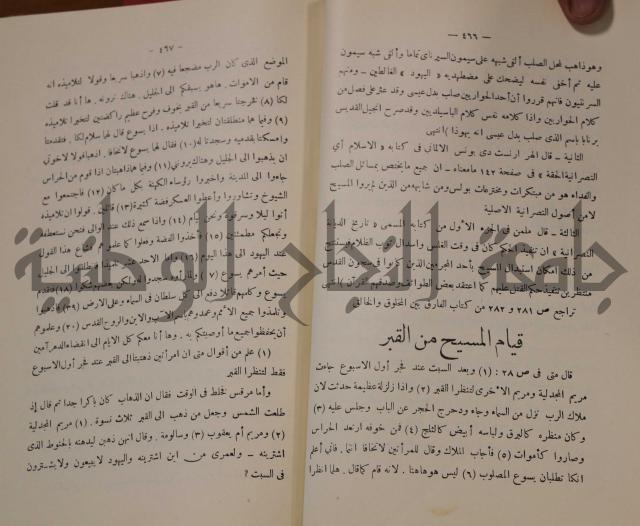 — ٤٦٦ —
وهو ذاهب لمحل الصلب ألقى شبهه على سيمون السيرناى تماما وألقى شبه سيمون
عليه ثم أخفى نفسه ليضحك على مضطهديه « اليهود » الغالطين ـ ومنهم
السرنتيون فانهم قرروا أن أحد الحواريين صلب بدل عيسى وقد عثر على فصل من
كلام الحواريين واذا كلامه نفس كلام الباسيليديين وقد صرح انجيل القديس
برنابا باسم الذى صلب بدل عيسى انه يهوذا ) انتهى
الثانية ـ قال الهر ارنست دى بونس الالمانى فى كتابه « الاسلام أي
النصرانية الحقة » فى صفحة ١٤٢ مامعناه ـ ان جميع مايختص بمسائل الصلب
والفداء هو من مبتكرات ومخترعات بولس ومن شابهه من الذين لم يروا المسيح
لا من أصول النصرانية الاصلية
الثالثة ـ قال ملمن فى الجزء الاول من كتابه المسمى « تاريخ الديانة
النصرانية » ان تنفيذ الحكم كان فى وقت الغلس واسدال ثوب الظلام فيستنتج
من ذلك امكان استبدال المسيح بأحد المجرمين الذين كانوا فى سجون القدس
منتظرين تنفيذ حكم القتل عليهم كما اعتقد بعض الطوائف وصدقهم القرآن ) انتهى
تراجع ص ٢٨١ و ٢٨٢ من كتاب الفارق بين المخلوق والخالق
قيام المسيح من القبر
قال متى فى ص ٢٨ : (١) وبعد السبت عند فجر أول الاسبوع جاءت
مريم المجدلية ومريم الاخرى لتنظرا القبر (٢) واذا زلزلة عظيمة حدثت لان
ملاك الرب نزل من السماء وجاء ودحرج الحجر عن الباب وجلس عليه (٣)
وكان منظره كالبرق ولباسه أبيض كالثلج (٤) فمن خوفه ارتعد الحراس
وصاروا كأموات (٥) فأجاب الملاك وقال للمرأتين لاتخافا أنتما. فانى أعلم
انكما تطلبان يسوع المصلوب (٦) ليس هو هاهنا . لانه قام كما قال . هلما انظرا
— ٤٦٧ —
الموضع الذى كان الرب مضجعا فيه (٧) واذهبا سريعا وقولا لتلاميذه انه
قام من الاموات . ها هو يسبقكم الى الجليل . هناك ترونه . ها أنا قد قلت
لكما (٨) فخرجتا سريعا من القبر بخوف وفرح عظيم راكضتين لتخبرا تلاميذه
(٩) وفيما هما منطلقتان لتخبرا تلاميذه . اذا يسوع قال لهما سلام لكما . فتقدمتا
وامسكتا بقدميه وسجدتا له (١٠) فقال لهما يسوع لاتخافا . اذهبا قولا لاخوتى
ان يذهبوا الى الجليل وهناك يرونى (١١) وفيما هما ذاهبتان اذا قوم من الحراس
جاءوا الى المدينة واخبروا رؤساء الكهنة بكل ما كان (١٢) فاجتمعوا مع
الشيوخ وتشاوروا وأعطوا العسكر فضة كثيرة (١٣) قائلين . قولوا ان تلاميذه
أتوا ليلا وسرقوه ونحن نيام (١٤) واذا سمع ذلك عند الوالى فنحن نستعطفه
ونجعلكم مطمئنين (١٥) فأخذوا الفضة وفعلوا كما علموهم فشاع هذا القول
عند اليهود الى هذا اليوم (١٦) واما الاحد عشر تلميذا فانطلقوا الى الجليل
حيث أمرهم يسوع (١٧) ولما رأوه سجدوا له ولكن بعضهم شكوا (١٨) فتقدم
يسوع وكلمهم قائلا دفع الى كل سلطان فى السماء وعلى الارض (١٩) فاذهبوا
وتلمذوا جميع الامم وعمدوهم باسم الاب والابن والروح القدس (٢٠) وعلموهم
أن يحفظوا جميع ما أوصيتكم به . وها أنا معكم كل الايام الى انقضاء الدهر آمين
(١) علم من أقوال متى ان امرأتين ذهبتا الى القبر عند فجر أول الاسبوع
فقط لتنظرا القبر
وأما مرقس فخلط فى الوقت فقال ان الذهاب كان باكرا جدا ثم قال إذ
طلعت الشمس وجعل من ذهب الى القبر ثلاث نسوة . (١) مريم المجدلية
(٢) ومريم أم يعقوب (٣) وسالومة . وقال انهن ذهبن ليدهنه بالحنوط الذى
اشترينه ـ ولعمرى من اين اشترينه واليهود لايبيعون ولايشترون
فى السبت ؟
جامعة النجاح الوطنية